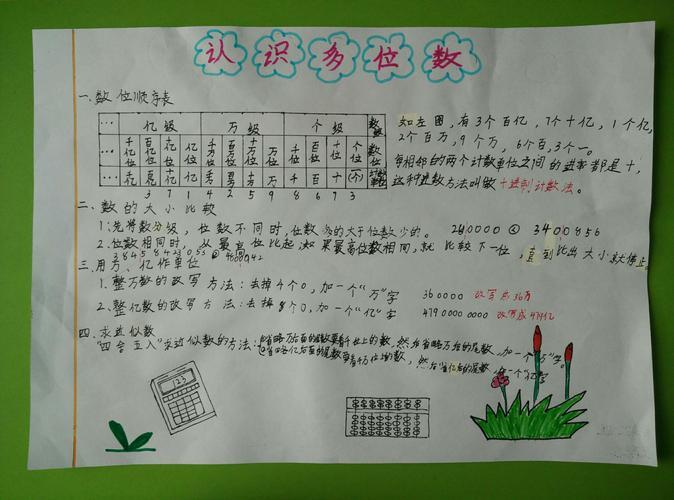 认识多位数
一.数位顺序表
… 亿级 万级 个级 数级
… 千亿位 百亿位 十亿位 亿位 千万位 百万位 十万位 万位 千位 百位 十位 个位 数位
… 千亿 百亿 十亿 亿 千万 百万 十万 万 千 百 十 个 计数单位
3 7 1 4 2 5 9 8 6 7 3
如左图,有3个百亿,7个十亿,1个亿,
2个百万,9个万,6个百,3个一。
每相邻的两个计数单位之间的进率都是十,
这种计数方法叫做十进制计数法。
二.数的大小比较
1.先将数分级,位数不同时,位数多的大于位数少的。
2.位数相同时,从最高位比起,如果最高位数相同,就比较下一位,直到比出大小就停止。
三.用万、亿作单位
1.整万数的改写方法:去掉4个0,加一个"万"字 360000 改写成36万
2.整亿数的改写方法:去掉8个0,加一个"亿"字 47900000000 改写成479亿
四.求近似数
"四舍五入"求近似数的方法: